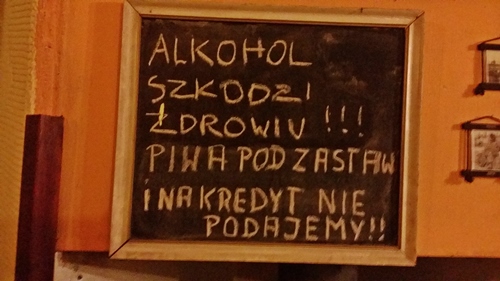 ALKOHOL
SZKODZI
ZDROWIU !!!
PIWA POD ZASTAW
i NA KREDYT NIE
PODAJEMY!!